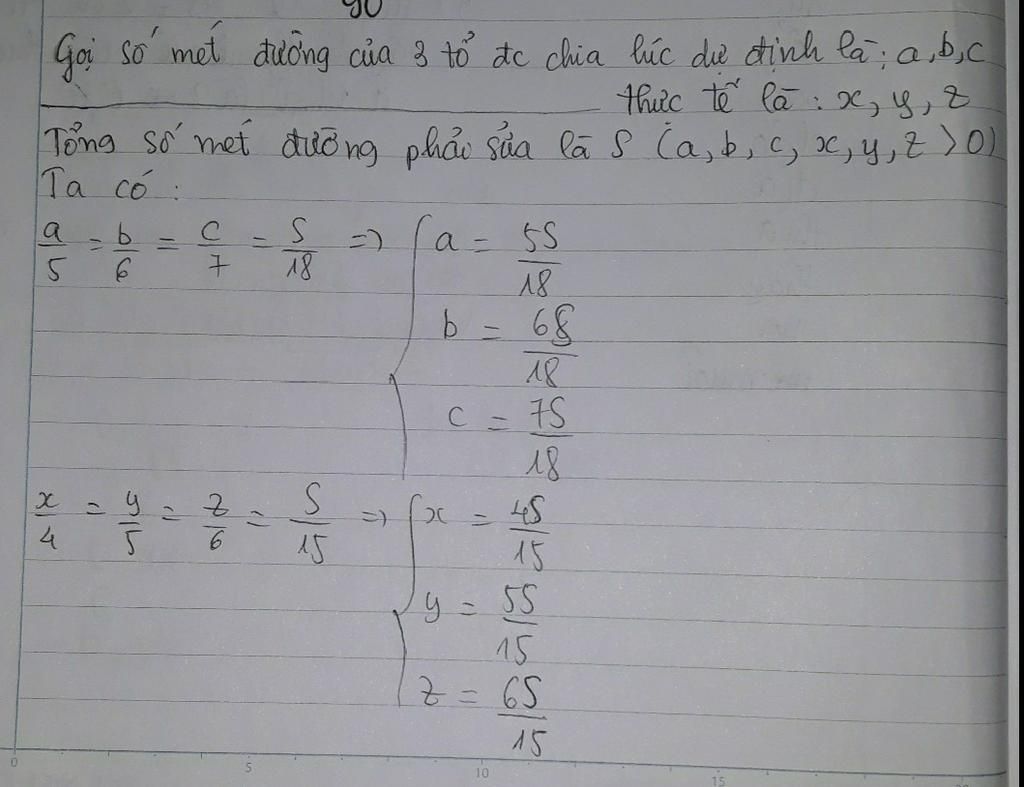 90
Gọi số mét đường của 3 tổ đc chia lúc dự định là: a, b, c
thực tế là: x, y, z
Tổng số mét đường phải sửa là S (a, b, c, x, y, z > 0)
Ta có:
a/5 = b/6 = c/7 = S/18 => { a = 5S/18
b = 6S/18
c = 7S/18
x/4 = y/5 = z/6 = S/15 => { x = 4S/15
y = 5S/15
z = 6S/15
0 5 10 15